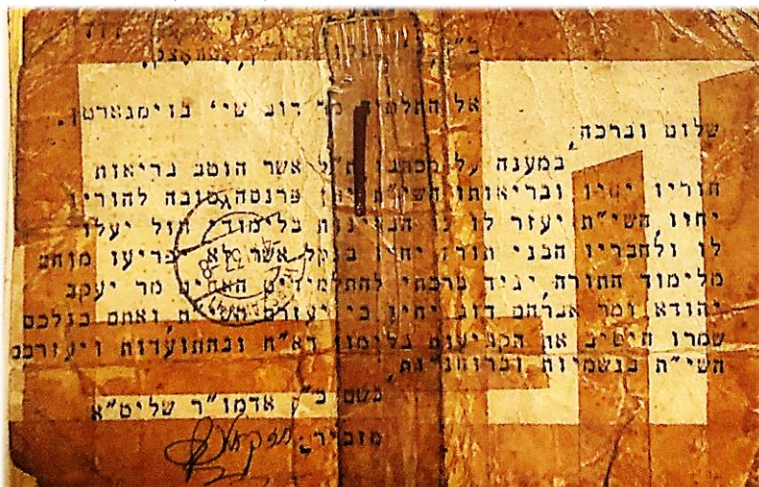 ב"ה
אל התלמיד מר דוב שי' בוימגארטן.
שלום וברכה,
במענה על מכתבו אשר הוטב בריאות
הוריו יחיו ובריאותו השי"ת פרנסה טובה להוריו
יחיו, השי"ת יעזר לו כי בלימודי חול יעלו
לו ולחבריו הבני תורה יחיו בנקל אשר לא יפריעו מוחם
מלימוד התורה, יגיד ברכתי להתלמידים האחים מר יעקב
יהודא ומר אברהם דוב יחיו כי יעזרם השי"ת, ואתם בכלכם
שמרו היטיב את הקביעות בלימוד דא"ח ובהתועדות ויעזרכם
השי"ת בגשמיות וברוחניות,
בשם כ"ק אדמו"ר שליט"א
מזכיר.